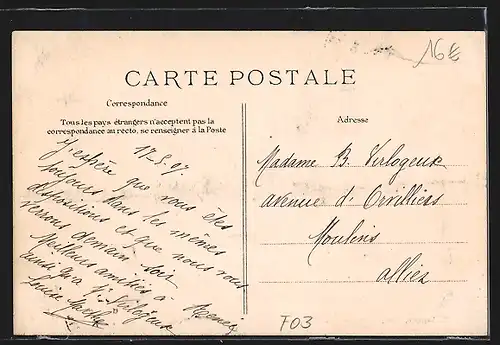 16 €
CARTE POSTALE
Correspondance
Tous les pays étrangers n'acceptent pas la
correspondance au recto, se renseigner à la Poste
17-5-07
J'espère que vous êtes
toujours dans les mêmes
dispositions et que nous vous
verrons demain soir
Meilleures amitiés à
ainsi qu'à
Louise
Adresse
Madame B. Verlogeux
avenue d'Orvilliers
Moulins
Allier
F03